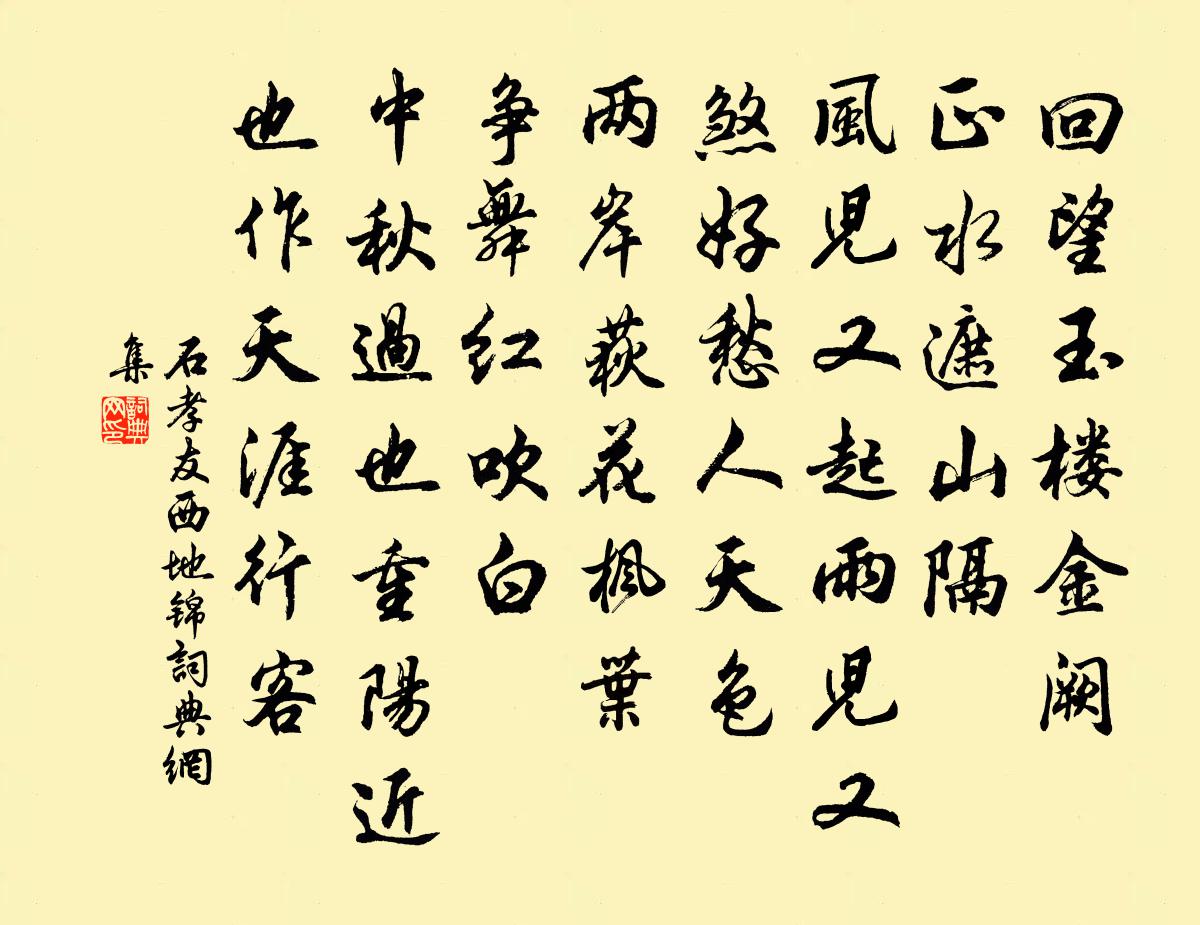 回望玉楼金阙
正水遮山隔
風児又起雨児又
煞好愁人天色
两岸荻花枫葉
争舞红吹白
中秋過也重陽近
也作天涯行客
石孝友西地锦詞典網
集
詞典网印